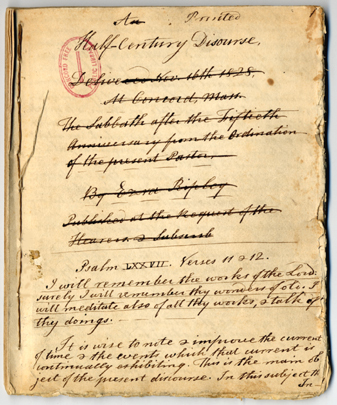 An Printed
Half-Century Discourse,
Delivered Nov. 16th 1828,
At Concord, Mass.
The Sabbath after the Fiftieth
Anniversary from the Ordination
of the present Pastor,
By Ezra Ripley
Published at the Request of the
Hearers & Subscrib
Psalm LXXVII. Verses 11 & 12.
I will remember the works of the Lord:
surely I will remember thy wonders of old. I
will meditate also of all thy works, & talk of
thy doings.
It is wise to note & improve the current
of time & the events which that current is
continually exhibiting. This is the main ob
ject of the present discourse. In this subject th
In